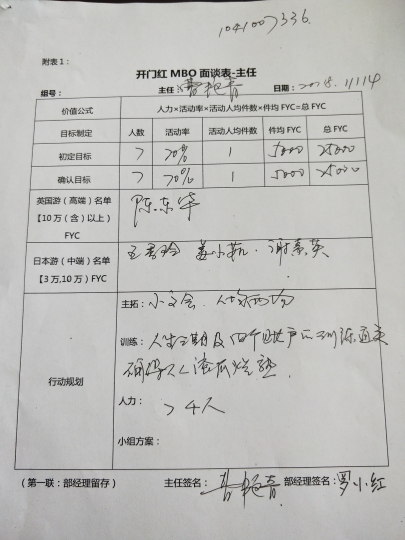 1041007336
附表1：
开门红 MBO 面谈表-主任
组号： 主任：曹艳青 日期：2018.11.14
价值公式 人力×活动率×活动人均件数×件均 FYC=总 FYC
目标制定 人数 活动率 活动人均件数 件均 FYC 总 FYC
初定目标 7 70% 1 5000 25000
确认目标 7 70% 1 5000 25000
英国游（高端）名单
【10 万（含）以上）
FYC
陈东华
日本游（中端）名单
【3 万,10 万）FYC
谢素英
行动规划
主拓：小交会. 人均两场
训练：
人力：
74人
小组方案：
（第一联：部经理留存） 主任签名：曹艳青 部经理签名：罗小红